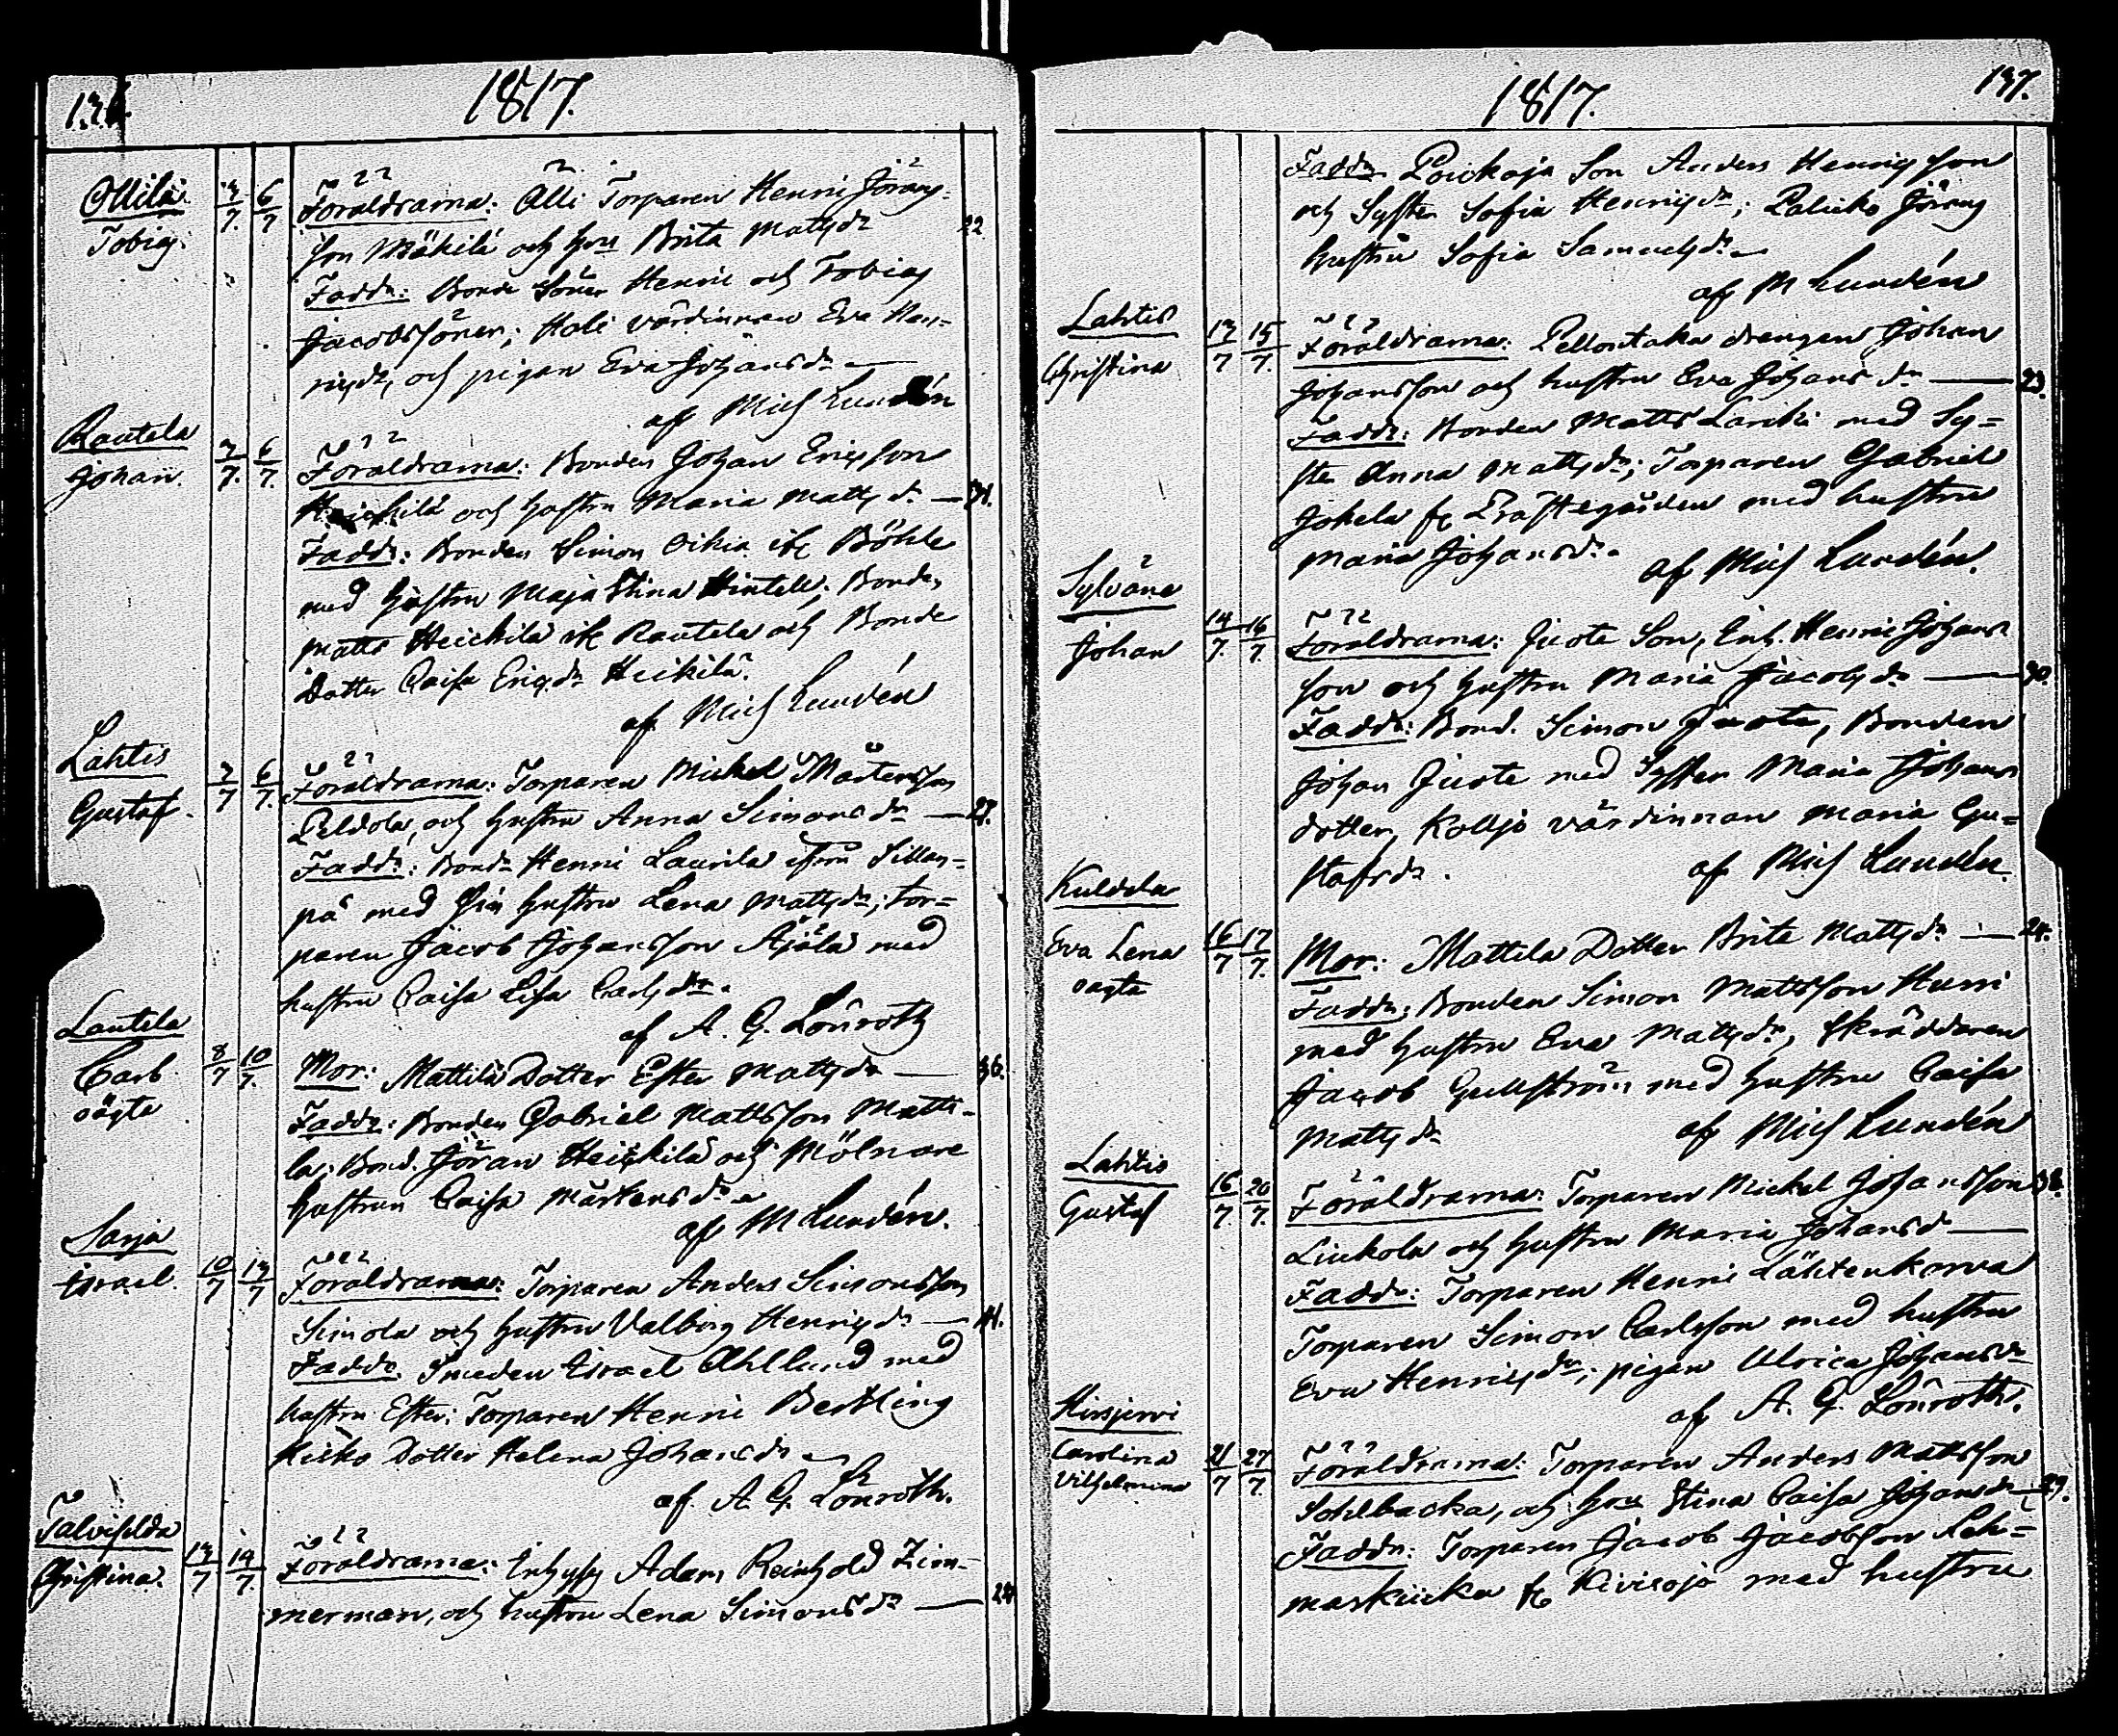 136.
1817.
Ollila.
Tobias.
3/7. 6/7
Föräldrarna: Alli Torparen Henric Jörans-
son Mäkilä och hru Brita Mattsdr 22
Faddr: Bonde Söner Henric och Tobias
Jacobssöner; Hali värdinnan Eva Hen-
ricsdr, och pigan Eva Johansdr
af Mich Lundén
Rautela
Johan.
3/7. 6/7.
Föräldrarna: Bonden Johan Ericsson
Heickilä och hustru Maria Mattsdr 31.
Faddr: Bonden Simon Oikia ifr Böhle
med hustru Maja Stina Hintell; Bonden
Matts Heickilä ifr Rautela och Bonde
Dotter Caisa Ericsdr Heickilä.
af Mich Lundén
Lahtis
Gustaf.
3/7 6/7.
Föräldrarna: Torparen Mickel Mårtensson
Peldola, och hustru Anna Simonsdr 28.
Faddr: Bondn Henric Laurila ifrån Sillan-
pä med sin hustru Lena Mattsdr; tor-
paren Jacob Johansson Äjälä med
hustru Caisa Lisa Carlsdr.
af A. G. Lönroth
Lautela
Carl
oägta
8/7 10/7.
Mor: Mattila Dotter Ester Mattsdr 36.
Faddr: Bonden Gabriel Mattsson Matti-
la; Bond. Jöran Heickilä och Mölnare
hustrun Caisa Mårtensdr
af M Lundén.
Sarja
Israel.
10/7 13/7
Föräldrarna: Torparen Anders Simonsson
Simola och hustru Valborg Henricsdr 41.
Faddr. Smeden Israel Ahllund med
hustru Ester: Torparen Henric Bertling
Heiko Dotter Helena Johansdr
af A. G. Lönroth.
Talvisilda
Christina.
13/7 14/7.
Föräldrarna: Inhyses Adam Reinhold Zim-
merman, och hustru Lena Simonsdr 24
1817.
137.
Faddr. Poickoja Son Anders Henricsson
och Syster Sofia Henricsdr; Palicko Jörans
hustru Sofia Samuelsdr
af M Lundén
Lahtis
Christina
13/7 15/7.
Föräldrarna: Pellontaka drengen Johan
Johansson och hustru Eva Johansdr 23.
Faddr: Bonden Matts Lariki med Sy-
ster Anna Mattsdr; Torparen Gabriel
Jokela fr Prästegården med hustru
Maria Johansdr.
af Mich Lundén.
Sylväne
Johan
14/7. 16/7.
Föräldrarna: Juote Son, Enh. Henric Johans-
son och hustru Maria Jacobsdr 30.
Faddr: Bond. Simon Juote, Bonden
Johan Juote med Syster Maria Johans
dotter, Kolljo värdinnan Maria Gu-
stafsdr.
af Mich Lundén.
Kuldda
Eva Lena
oägta
16/7 17/7.
Mor: Mattila Dotter Brita Mattsdr 24.
Faddr: Bonden Simon Mattsson Hurri
med hustru Eva Mattsdr, Skräddaren
Jacob Gullström med hustru Caisa
Mattsdr
af Mich Lundén
Lahtis
Gustaf
16/7. 20/7.
Föräldrarna: Torparen Mickel Johansson 38.
Liukola och hustru Maria Johansd
Faddr: Torparen Henric Lähtenkorva
Torparen Simon Carlsson med hustru
Eva Henricsdr; pigan Ulrica Johansdr
af A. G. Lönroth.
Hirsjervi
Carolina
Vilhelmina
21/7 27/7.
Föräldrarna: Torparen Anders Mattsson
Sohlbacka, och hru Stina Caisa Johansdr 29.
Faddr: Torparen Jacob Jacobsson Leh-
maskiicka fr Kivioja med hustru